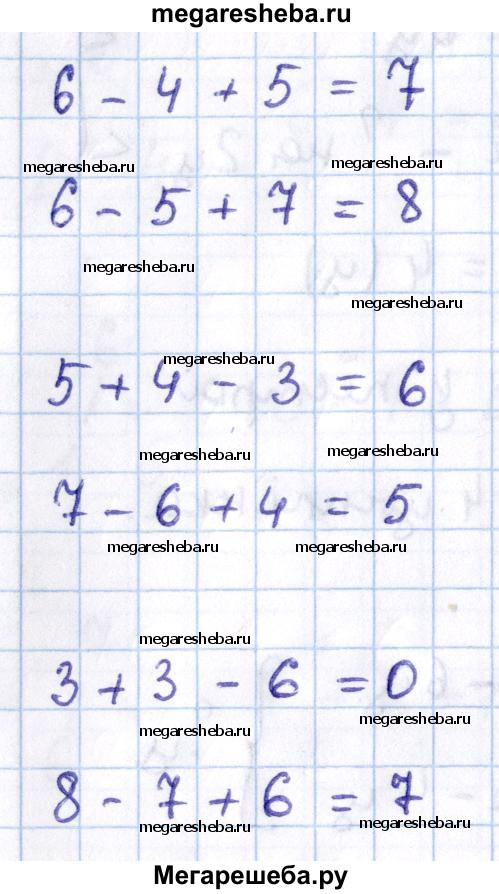 megaresheba.ru
6 - 4 + 5 = 7
megaresheba.ru megaresheba.ru
6 - 5 + 7 = 8
megaresheba.ru
megaresheba.ru
megaresheba.ru
5 + 4 - 3 = 6
megaresheba.ru megaresheba.ru
7 - 6 + 4 = 5
megaresheba.ru megaresheba.ru
megaresheba.ru
3 + 3 - 6 = 0
megaresheba.ru
megaresheba.ru
8 - 7 + 6 = 7
megaresheba.ru megaresheba.ru
Мегарешеба.ру